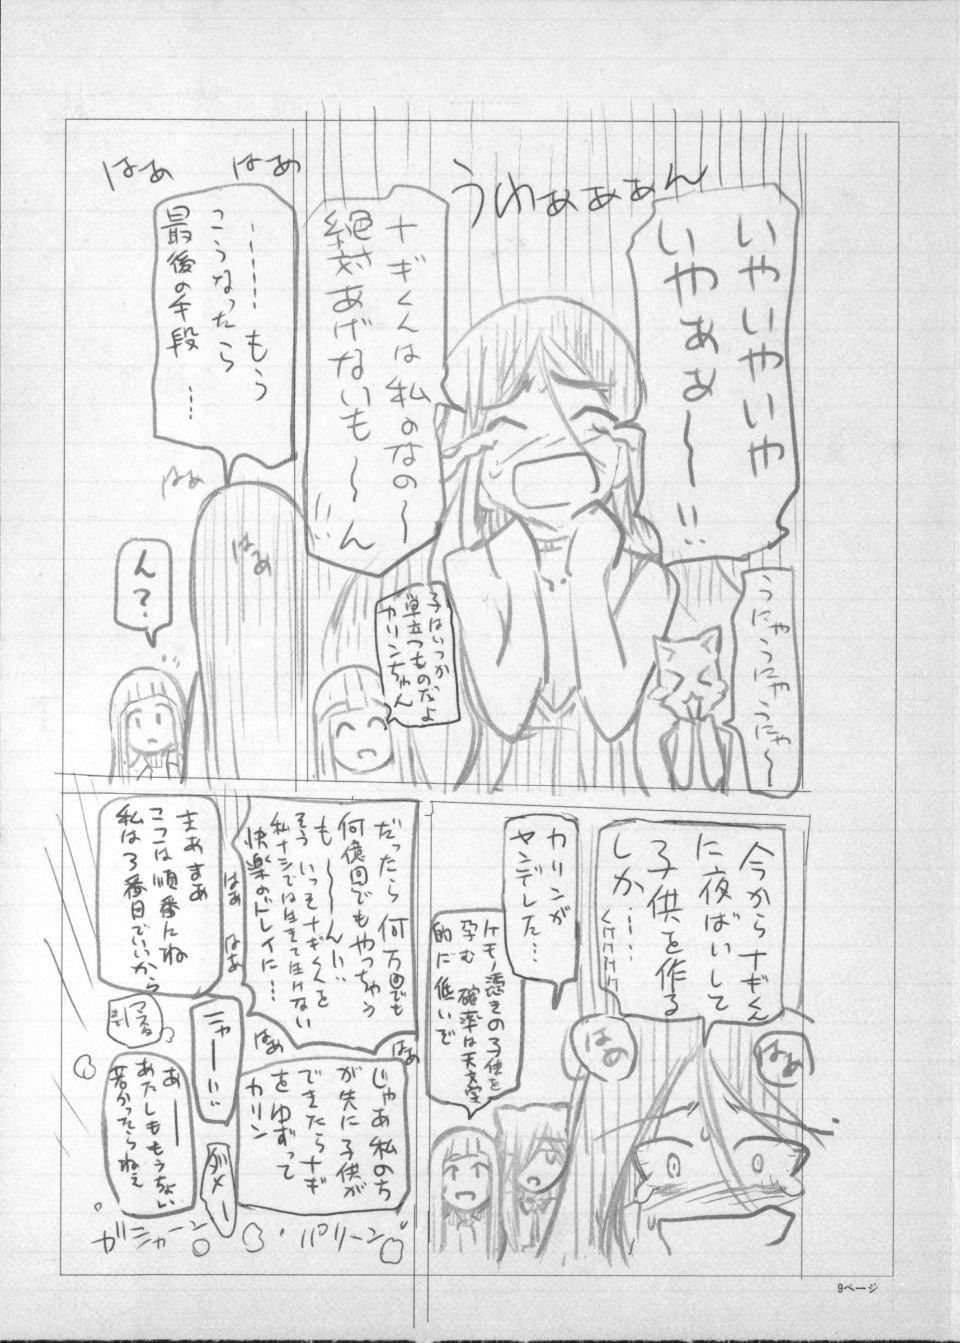 いやいやいや
いやぁぁ〜!!
うわぁぁぁん
ナギくんは私のなの〜
絶対あげないも〜ん
はぁ
はぁ
……もう
こうなったら
最後の手段…
はぁ
はぁ
うにゃうにゃうにゃ〜
子はいつか
巣立つものだよ
カリンちゃん
ん?
今からナギくん
に夜ばいして
子供を作る
しか……
はぁ
はぁ
カリンが
ヤンデレした…
ケモノ憑きの子供を
孕む確率は天文学
的に低いぞ
だったら何万回でも
何億回でもやっちゃう
も〜ん!!
そういっそナギくんを
私ナシでは生きて生けない
快楽のトレイに…
はぁ
はぁ
はぁ
はぁ
じゃあ私のち
が先に子供が
できたらナギ
をゆずって
カリン
まぁまぁ
ここは順番にね
私は3番目でいいから
ニャー!!
ダメー
あ──
あたしももうちょい
若かったらねぇ
パリーン
ガシャーン
9ページ